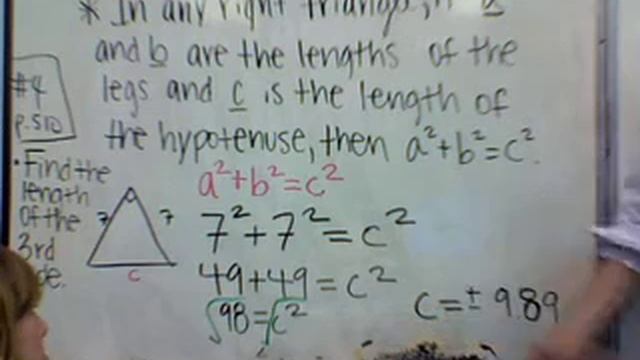 * In any right triangle, if a
and b are the lengths of the
legs and c is the length of
the hypotenuse, then a²+b²=c².
#4
p.510
• Find the
length
of the
3rd
7
7
c
a²+b²=c²
7²+7²=c²
49+49=c²
√98=√c²
c=± 9.89